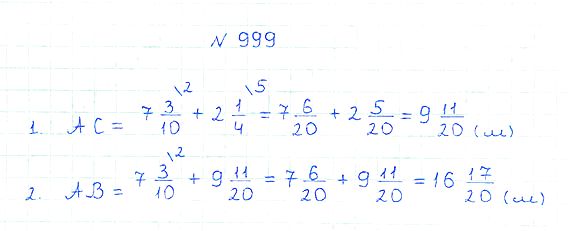 N 999
1. AC = 7 3/10 \2 + 2 1/4 \5 = 7 6/20 + 2 5/20 = 9 11/20 (м)
2. AB = 7 3/10 \2 + 9 11/20 = 7 6/20 + 9 11/20 = 16 17/20 (м)